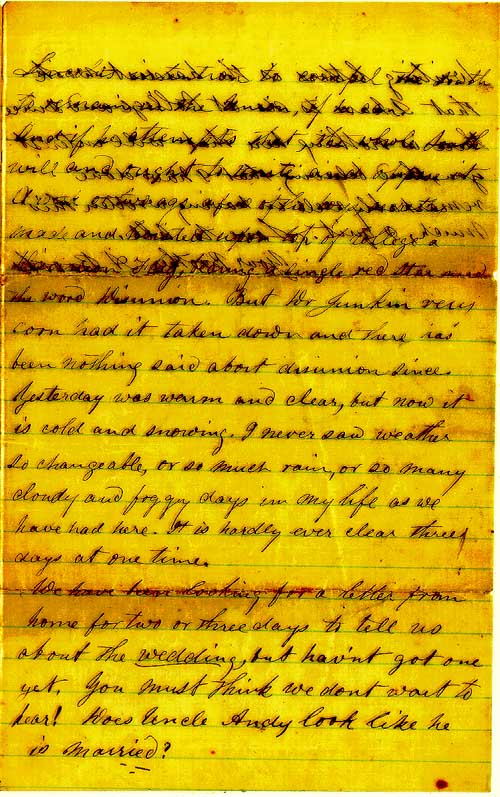 Lincoln's intention to compel the south
to remain in the Union, if he can
And if he attempts that, the whole South
will and ought to unite and
ago of the
made and upon top of college a
Disunion Flag, being a single red star and
the word Disunion. But Dr Junkin very
soon had it taken down and there has
been nothing said about disunion since.
Yesterday was warm and clear, but now it
is cold and snowing. I never saw weather
so changeable, or so much rain, or so many
cloudy and foggy days in my life as we
have had here. It is hardly ever clear three
days at one time.
We have been looking for a letter from
home for two or three days to tell us
about the wedding, but hav'nt got one
yet. You must think we dont want to
hear! Does Uncle Andy look like he
is married?